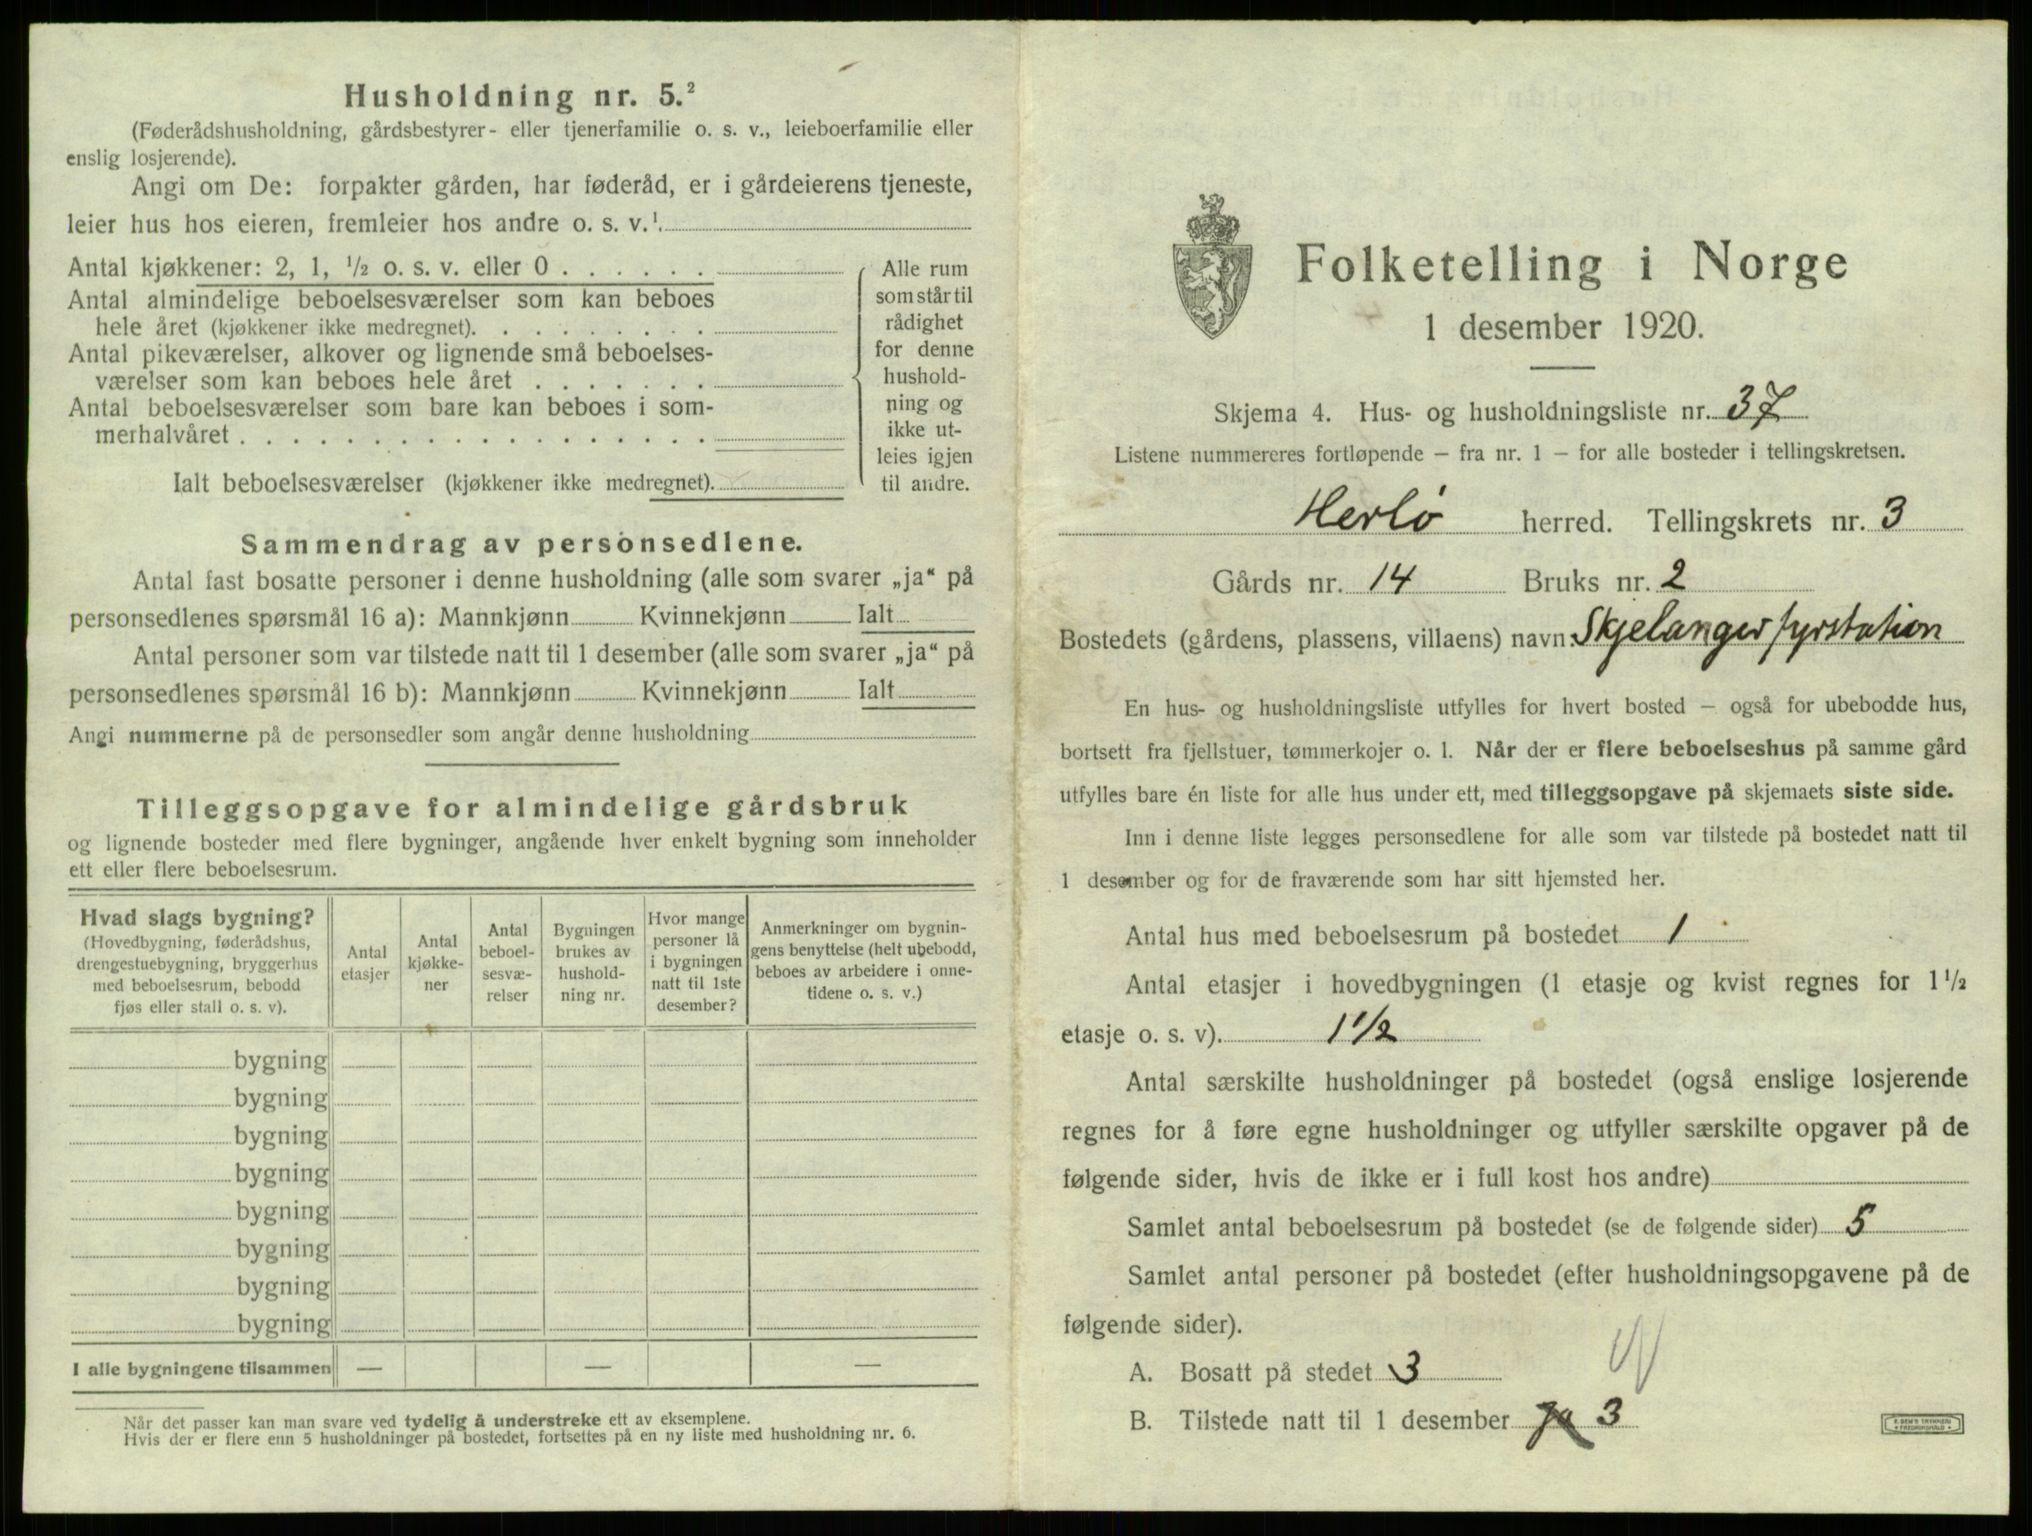 Husholdning nr. 5.²
(Føderådshusholdning, gårdsbestyrer- eller tjenerfamilie o. s. v., leieboerfamilie eller
enslig losjerende).
Angi om De: forpakter gården, har føderåd, er i gårdeierens tjeneste,
leier hus hos eieren, fremleier hos andre o. s. v.¹
Antal kjøkkener: 2, 1, ½ o. s. v. eller 0 . . . . . .
Antal almindelige beboelsesværelser som kan beboes
hele året (kjøkkener ikke medregnet). . . . . . . . .
Antal pikeværelser, alkover og lignende små beboelses-
værelser som kan beboes hele året . . . . . . .
Antal beboelsesværelser som bare kan beboes i som-
merhalvåret . . . . . . . . . . . . . . . . . .
Ialt beboelsesværelser (kjøkkener ikke medregnet).
Alle rum
som står til
rådighet
for denne
hushold-
ning og
ikke ut-
leies igjen
til andre.
Sammendrag av personsedlene.
Antal fast bosatte personer i denne husholdning (alle som svarer „ja“ på
personsedlenes spørsmål 16 a): Mannkjønn Kvinnekjønn Ialt
Antal personer som var tilstede natt til 1 desember (alle som svarer „ja“ på
personsedlenes spørsmål 16 b): Mannkjønn Kvinnekjønn Ialt
Angi nummerne på de personsedler som angår denne husholdning
Tilleggsopgave for almindelige gårdsbruk
og lignende bosteder med flere bygninger, angående hver enkelt bygning som inneholder
ett eller flere beboelsesrum.
Hvad slags bygning?
(Hovedbygning, føderådshus,
drengestuebygning, bryggerhus
med beboelsesrum, bebodd
fjøs eller stall o. s. v).
Antal
etasjer
Antal
kjøkke-
ner
Antal
beboel-
sesvæ-
relser
Bygningen
brukes av
hushold-
ning nr.
Hvor mange
personer lå
i bygningen
natt til 1ste
desember?
Anmerkninger om bygnin-
gens benyttelse (helt ubebodd,
beboes av arbeidere i onne-
tidene o. s. v.)
bygning
bygning
bygning
bygning
bygning
bygning
bygning
bygning
I alle bygningene tilsammen — — —
Når det passer kan man svare ved tydelig å understreke ett av eksemplene.
Hvis der er flere enn 5 husholdninger på bostedet, fortsettes på en ny liste med husholdning nr. 6.
Folketelling i Norge
1 desember 1920.
Skjema 4. Hus- og husholdningsliste nr. 37
Listene nummereres fortløpende — fra nr. 1 — for alle bosteder i tellingskretsen.
Herlö herred. Tellingskrets nr. 3
Gårds nr. 14 Bruks nr. 2
Bostedets (gårdens, plassens, villaens) navn: Skjelanger fyrstation
En hus- og husholdningsliste utfylles for hvert bosted — også for ubebodde hus,
bortsett fra fjellstuer, tømmerkojer o. l. Når der er flere beboelseshus på samme gård
utfylles bare én liste for alle hus under ett, med tilleggsopgave på skjemaets siste side.
Inn i denne liste legges personsedlene for alle som var tilstede på bostedet natt til
1 desember og for de fraværende som har sitt hjemsted her.
Antal hus med beboelsesrum på bostedet 1
Antal etasjer i hovedbygningen (1 etasje og kvist regnes for 1½
etasje o. s. v). 1 1/2
Antal særskilte husholdninger på bostedet (også enslige losjerende
regnes for å føre egne husholdninger og utfyller særskilte opgaver på de
følgende sider, hvis de ikke er i full kost hos andre)
Samlet antal beboelsesrum på bostedet (se de følgende sider) 5
Samlet antal personer på bostedet (efter husholdningsopgavene på de
følgende sider).
A. Bosatt på stedet 3
B. Tilstede natt til 1 desember ja 3